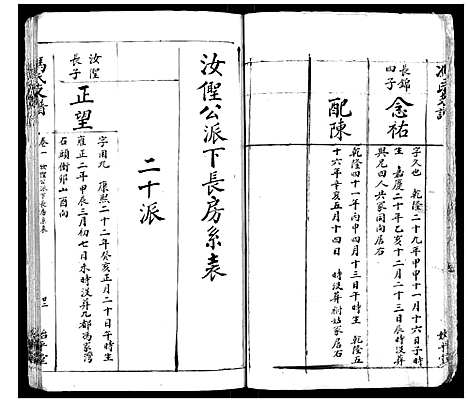 長錦
四子
念祐
字久也 乾隆二十九年甲申十一月十六日子時
生 嘉慶二十年乙亥十二月二十三日辰時没葬
與兄四人共冢同向居右
配陳
乾隆四十一年丙申四月十三日午時生 乾隆五
十六年辛亥五月十四日 時没葬樹姑冢居右
汝㒫公派下長房系表
二十派
汝㒫
長子
正望
字用九 康熙二十二年癸亥正月二十日午時生
雍正二年甲辰三月初七日未時没葬九都馮家灣
石頭衝卯山酉向
馮氏支譜
卷一 汝㒫公派下長房系表
廿三
始平堂